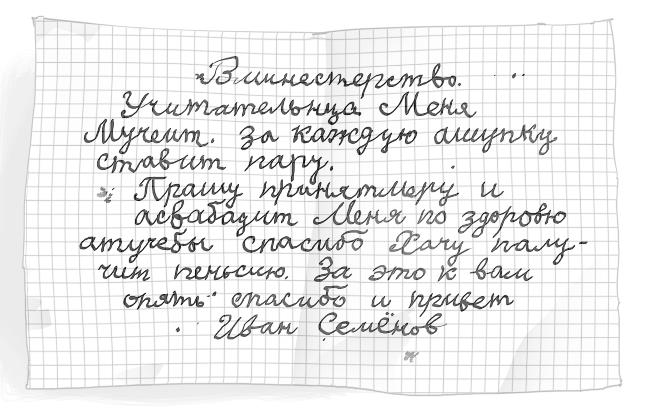 Вминестерство.
Учитательнца Меня
Мучеит. За каждую ашупку
ставит пару.
Прашу принятмеру и
асвабадит Меня по здоровю
атучебы спасибо Хачу палу-
чит пеньсию. За это к вам
опять спасибо и привет
Иван Семёнов